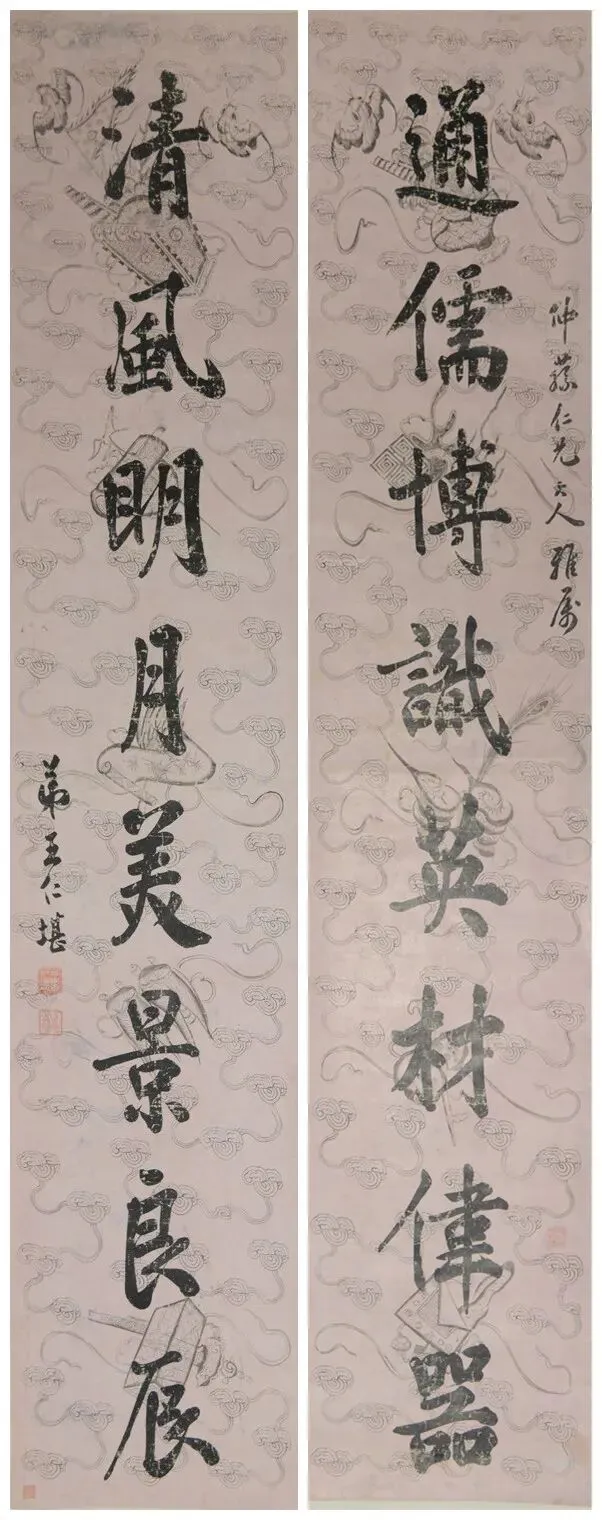 通儒博識英材偉器
仲蓀仁兄大人雅屬
清風明月美景良辰
弟王仁堪